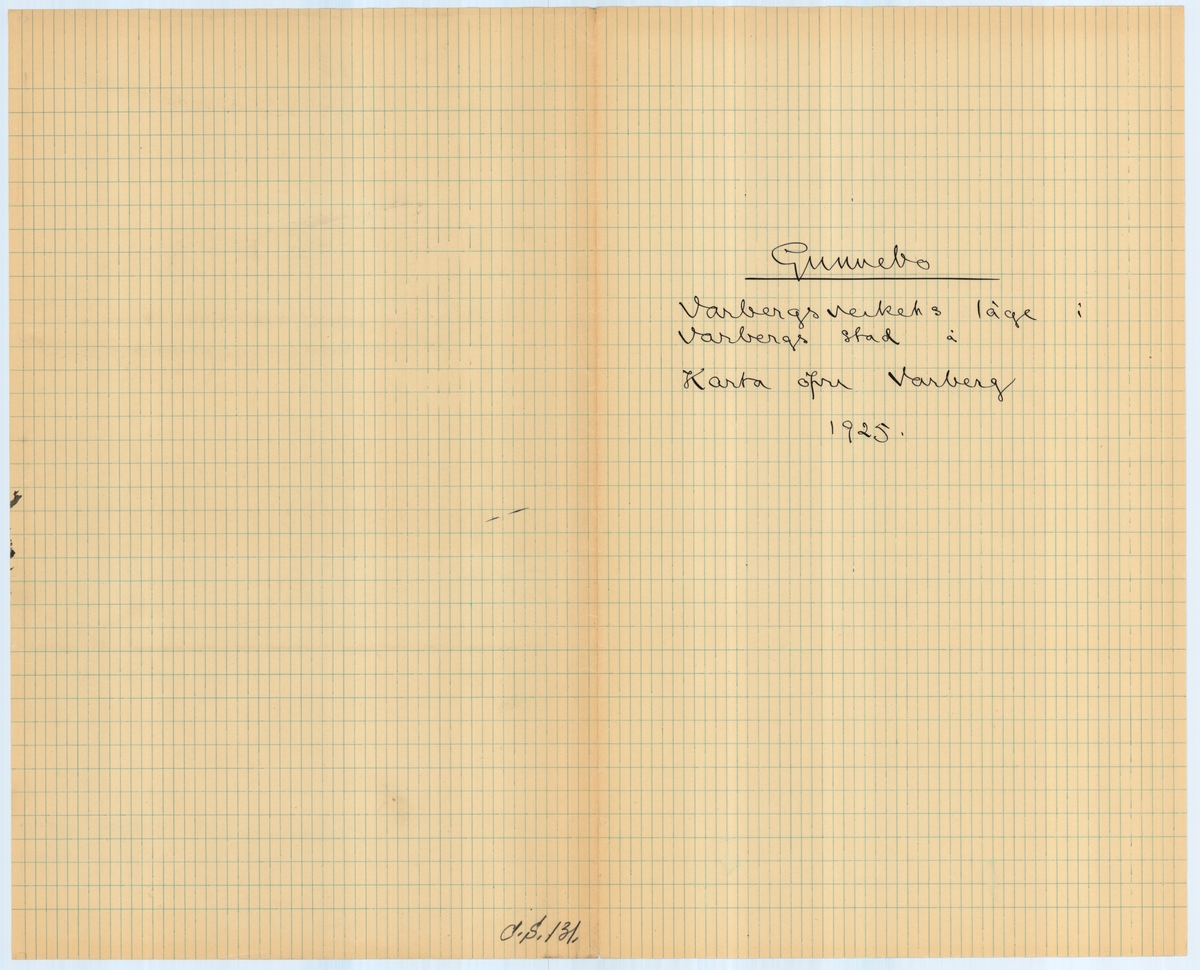 Gunnebo
Varbergsverkets läge i
Varbergs stad å
Karta öfver Varberg
1925.
d.S.131.